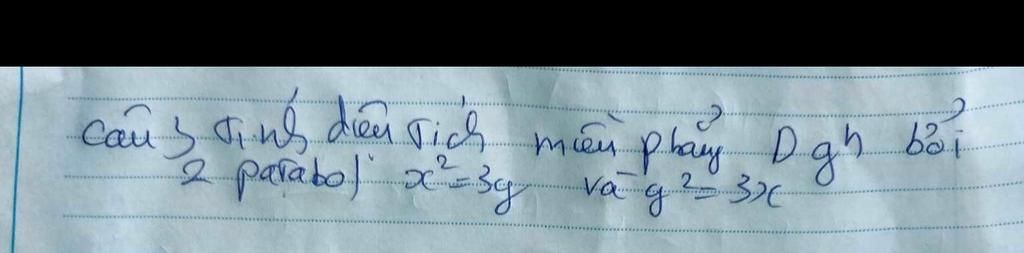 Câu 3 Tính diện tích miền phẳng D gh bởi
2 parabol x² = 3y và y² = 3x